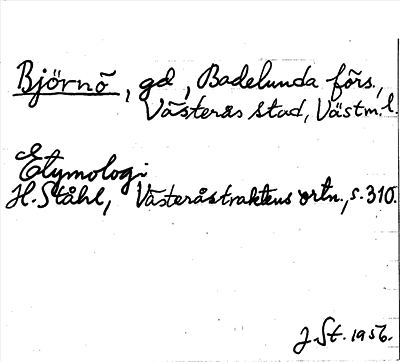 Björnö, gd, Badelunda förs.,
Västerås stad, Västm.l.
Etymologi
H. Ståhl, Västeråstraktens ortn., s. 310.
J. St. 1956.